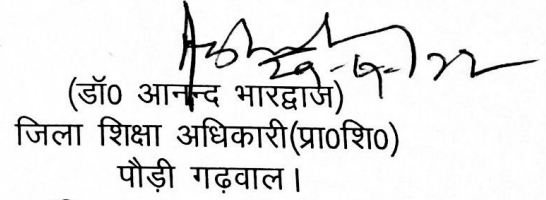 (डॉ0 आनन्द भारद्वाज)
जिला शिक्षा अधिकारी(प्रा0शि0)
पौड़ी गढ़वाल।